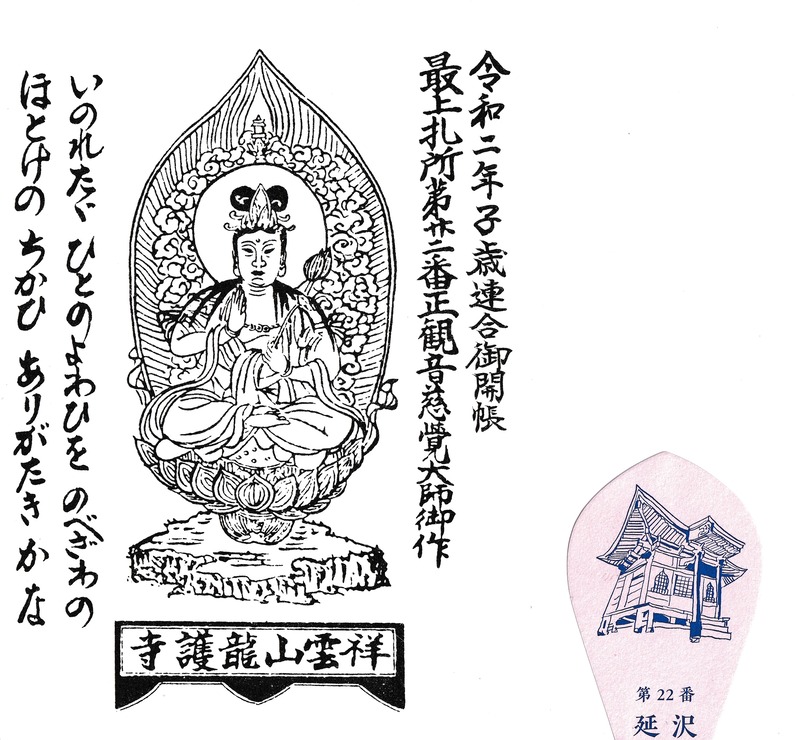 令和二年子歳連合御開帳
最上札所第廿二番正観音慈覺大師御作
いのれたゞ ひとのよわひを のべざわの
ほとけの ちかひ ありがたき かな
祥雲山龍護寺
第22番
延沢